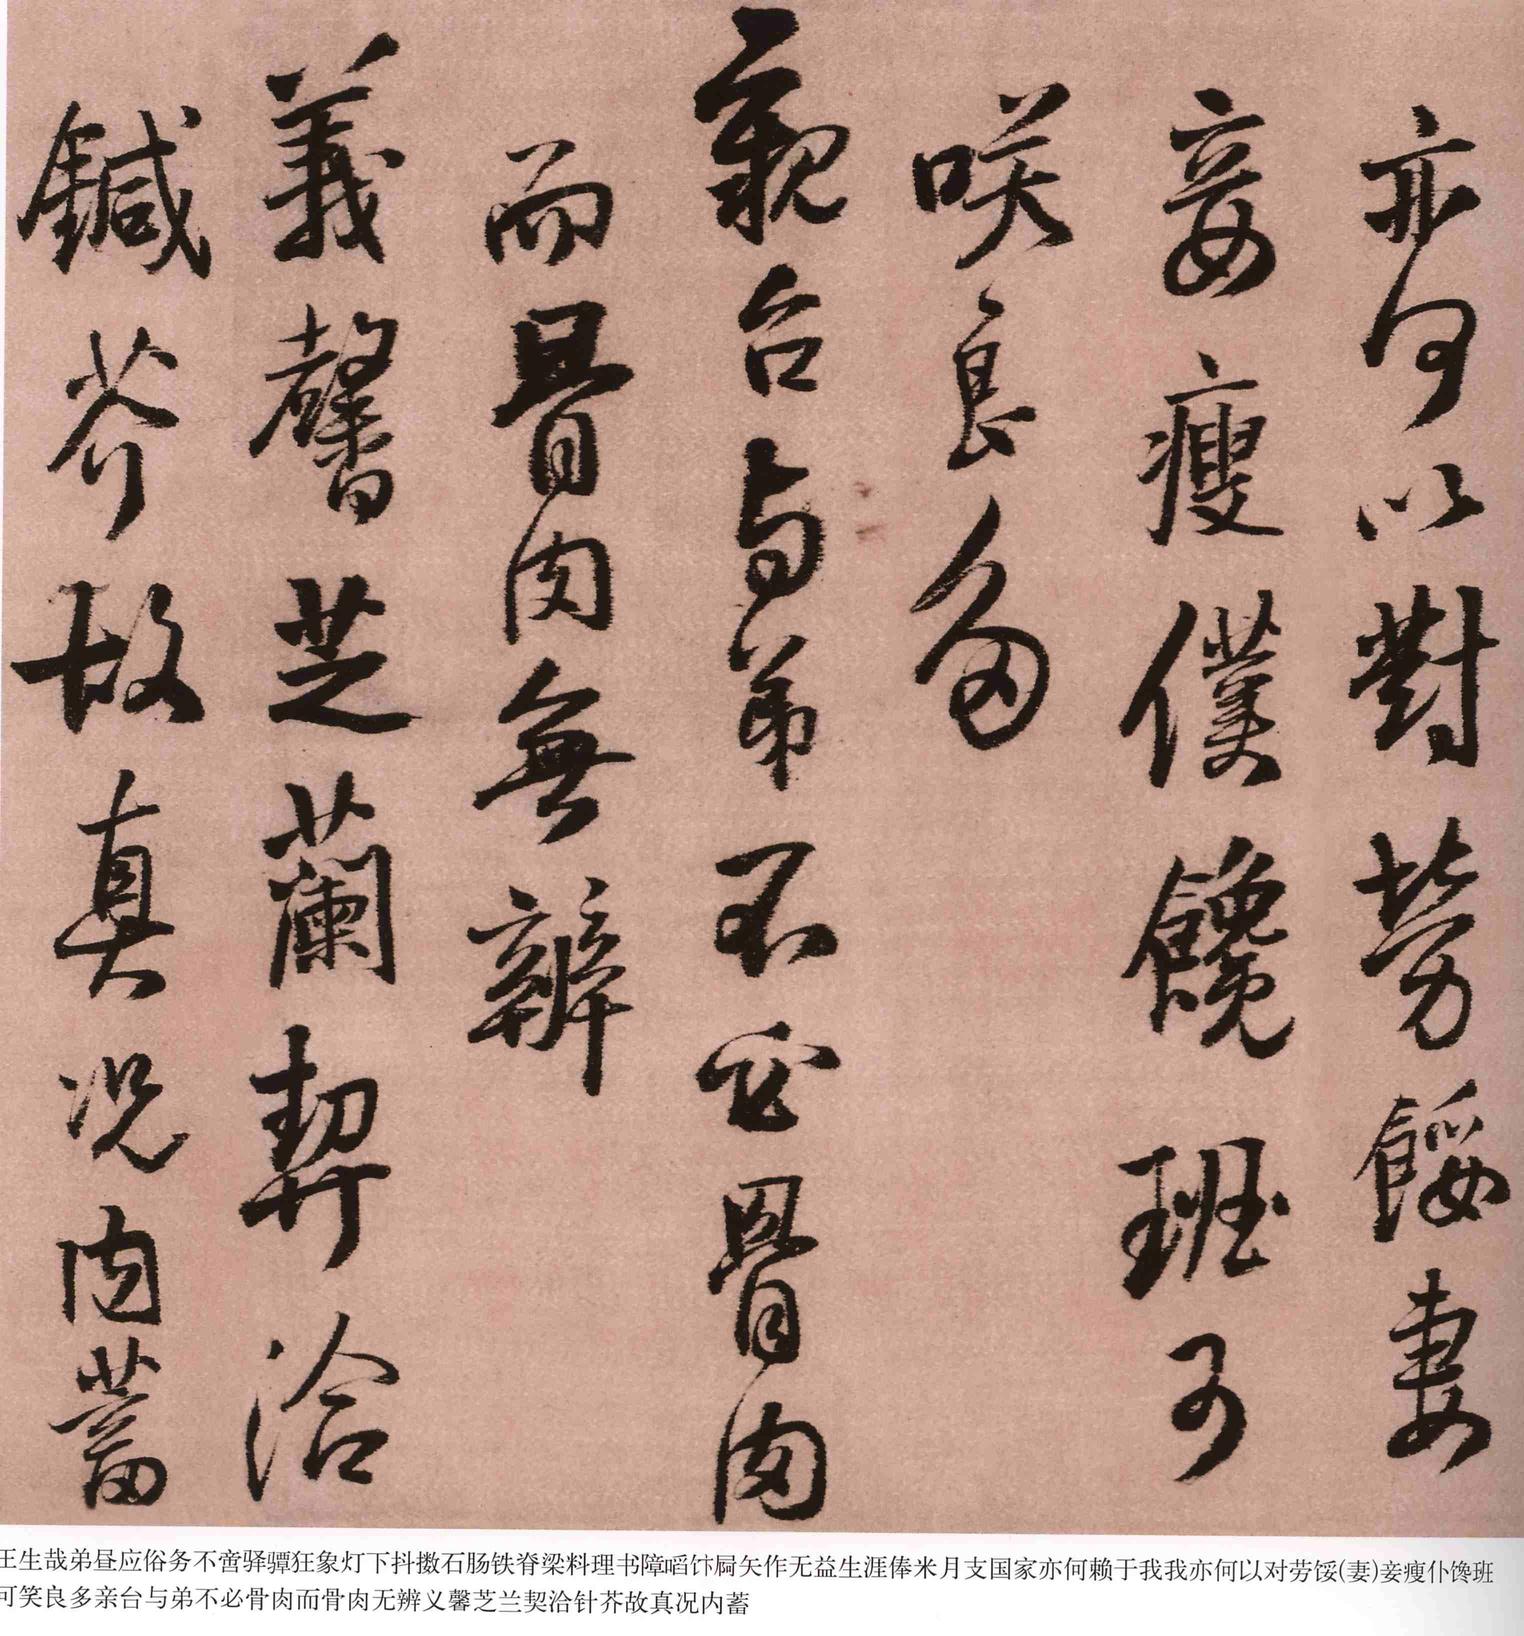 亦何以對勞餒妻
妾瘦僕饞班可
咲良多
親台与弟不必骨肉
而骨肉無辨
義馨芝蘭契洽
鍼芥故真况内蓄
王生哉弟昼应俗务不啻驿骠狂象灯下抖擞石肠铁脊梁料理书障嚪饣屙矢作无益生涯俸米月支国家亦何赖于我我亦何以对劳馁(妻)妾瘦仆馋班
可笑良多亲台与弟不必骨肉而骨肉无辨义馨芝兰契洽针芥故真况内蓄